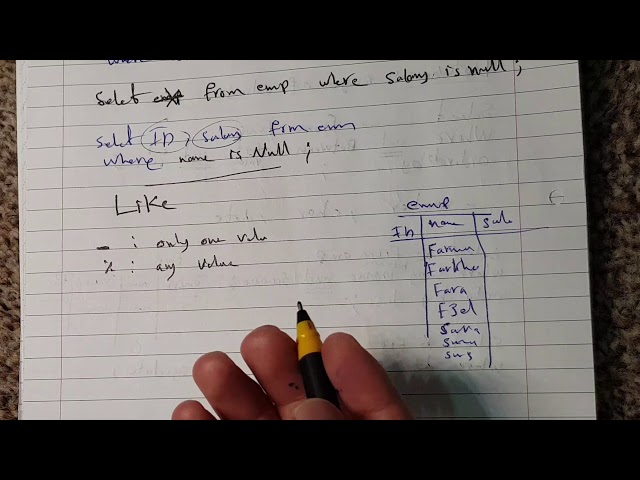 Select * from emp where Salary is null;
Select ID, salary from emp
where name is Null;
Like
_ : only one value
% : any value
emp
ID name sala
Farkha
Fara
Sara